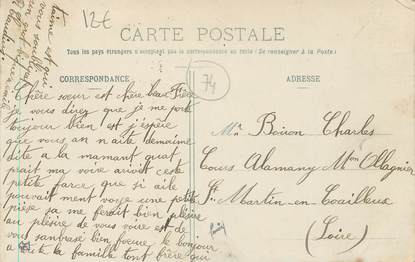 12€
CARTE POSTALE
Tous les pays étrangers n'acceptent pas la correspondance au recto (Se renseigner à la Poste)
CORRESPONDANCE
ADRESSE
74
Chère sœur est chère beau Frère
je vous direz que je me porte
toujour bien est j'espère
que vous an n aite demaime
dite a la mamant quat
prait ma voire arivét ceste
petite farce que si aite
pouvait ment voyé une petite
pièse sa me ferait bien plésire
au plésire de vous voire est de
vous bien le bonjour
a toute la famille tont frère qui
t'aime est qui
Mr Boiron Charles
Cours Alamany Mon Ollagnier
St Martin-en-Coailleux
(Loire)